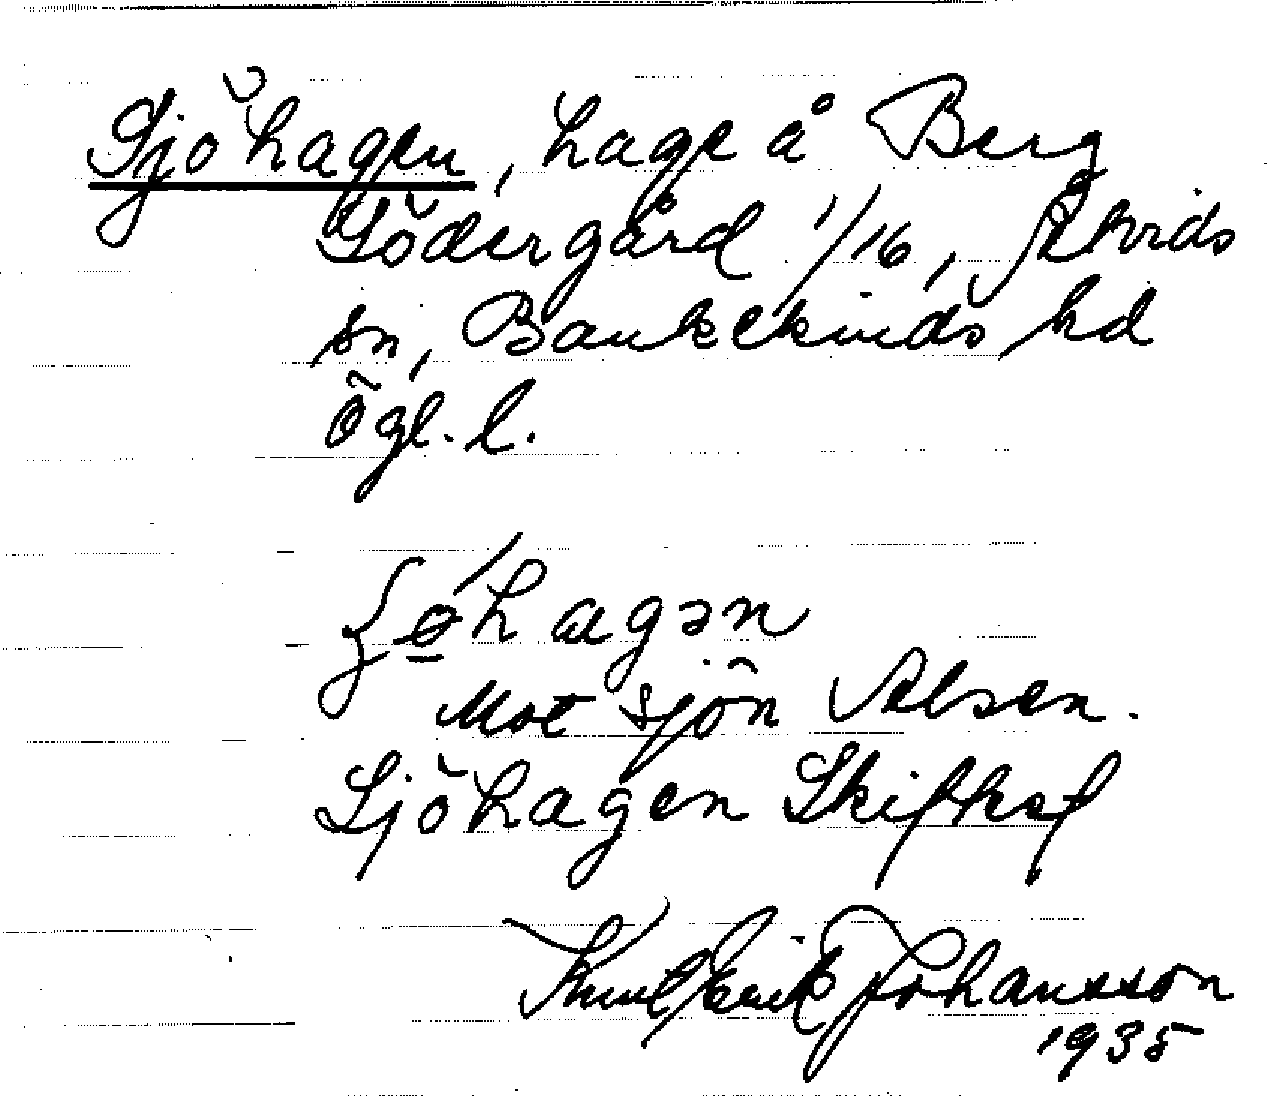 Sjöhagen, hage å Berg
Södergård 1/16, Åtvids
sn, Bankekinds hd
Ögl. l.
hagən
Mot sjön Ålsen.
Sjöhagen Skifteskf
Knut Erik Johansson
1935